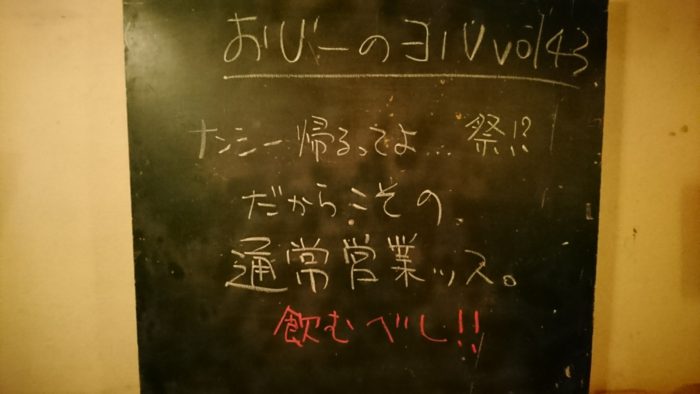 おびーのヨルvol43
ナンシー帰るってよ… 祭!?
だからこその
通常営業ッス。
飲むべし!!